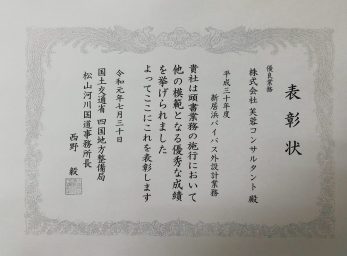 表彰状
優良業務
株式会社 芙蓉コンサルタント 殿
平成三十年度
新居浜バイパス外設計業務
貴社は頭書業務の施行において
他の模範となる優秀な成績
を挙げられました
よってここにこれを表彰します
令和元年七月三十日
国土交通省 四国地方整備局
松山河川国道事務所長
西野 毅